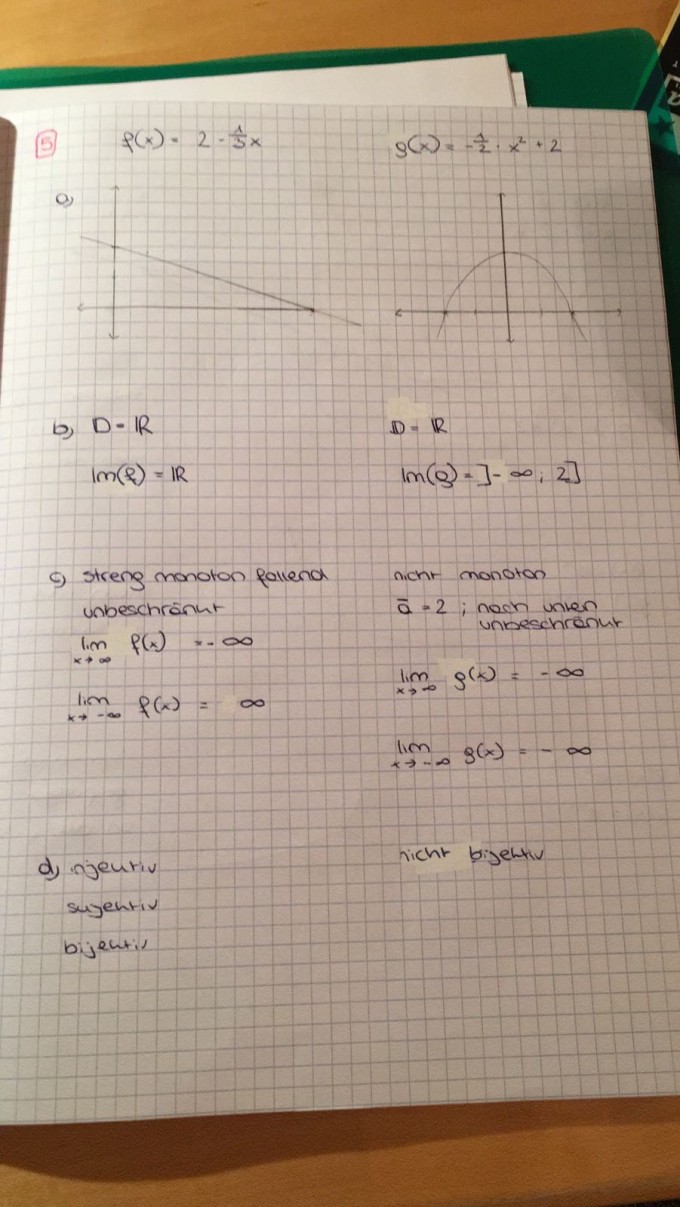 5
f(x) = 2 - 1/3 x
g(x) = -1/2 · x² + 2
a)
b) D = ℝ
Im(f) = ℝ
D = ℝ
Im(g) = ]-∞; 2]
c) streng monoton fallend
unbeschränkt
lim x→∞ f(x) = -∞
lim x→-∞ f(x) = ∞
nicht monoton
ā = 2 ; nach unten
unbeschränkt
lim x→∞ g(x) = -∞
lim x→-∞ g(x) = -∞
d) injektiv
surjektiv
bijektiv
nicht bijektiv